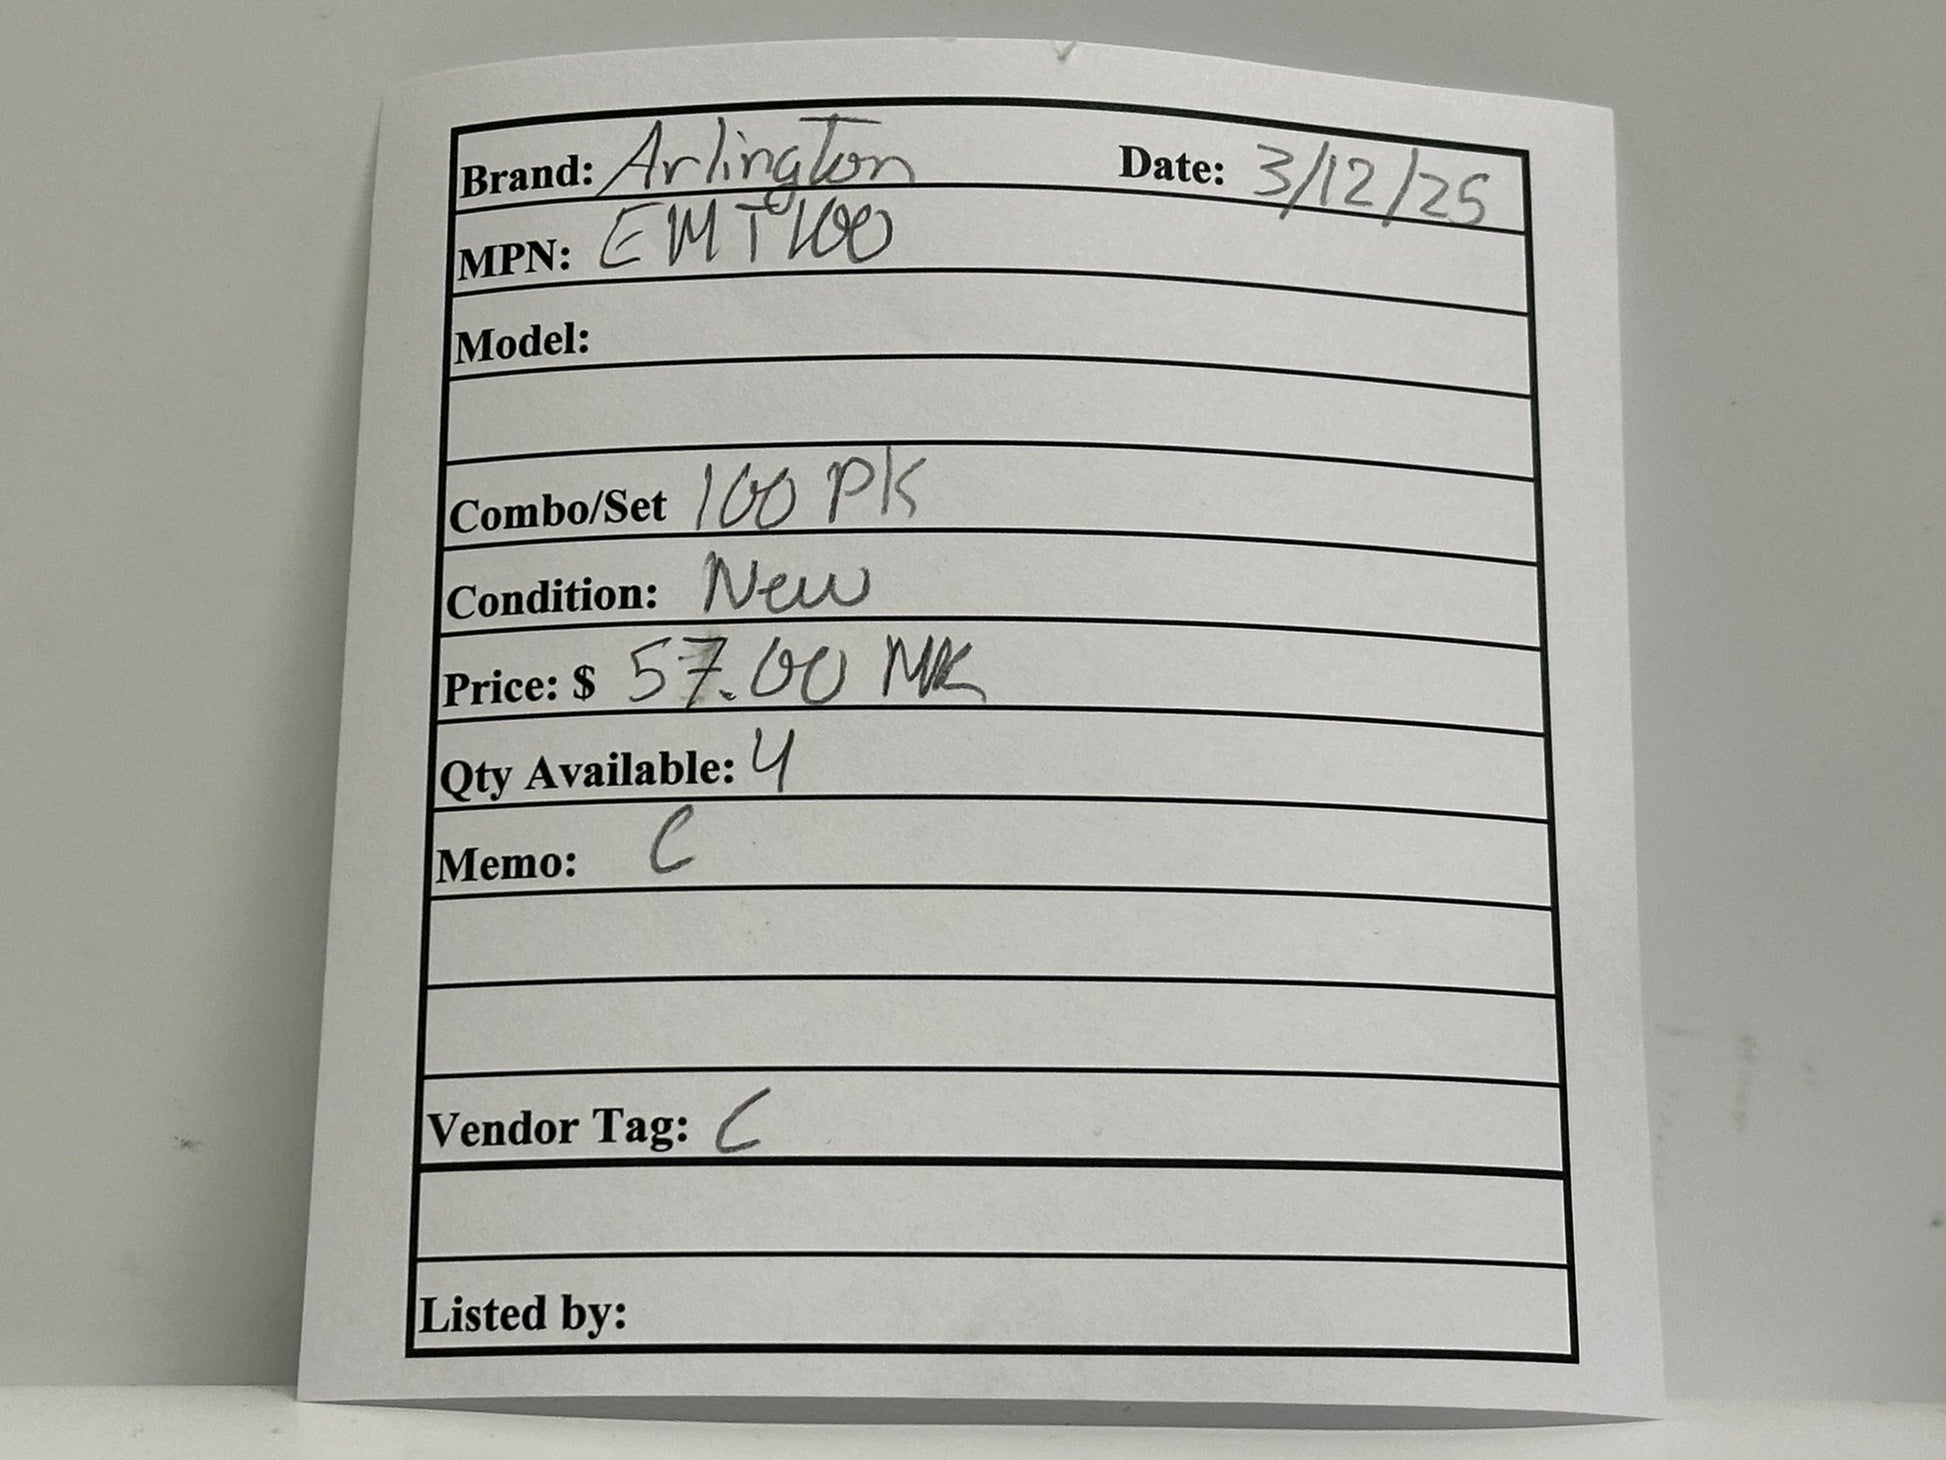 Brand: Arlington Date: 3/12/25
MPN: EMT100
Model:
Combo/Set 100 PK
Condition: New
Price: $ 57.00 MK
Qty Available: 4
Memo: C
Vendor Tag: C
Listed by: